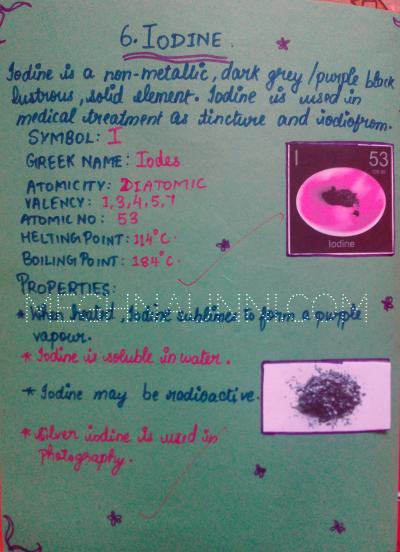 6. IODINE.
Iodine is a non-metallic, dark grey/purple black
lustrous, solid element. Iodine is used in
medical treatment as tincture and iodiofrom.
SYMBOL: I
GREEK NAME: Iodes
ATOMICITY: DIATOMIC
VALENCY: 1,3,4,5,7
ATOMIC NO: 53
MELTING POINT: 114°C.
BOILING POINT: 184°C.
I 53
Iodine
PROPERTIES:
MEGHNAUNNI.COM
* When heated, Iodine sublimes to form a purple
vapour.
* Iodine is soluble in water.
* Iodine may be radioactive.
* Silver iodine is used in
photography.